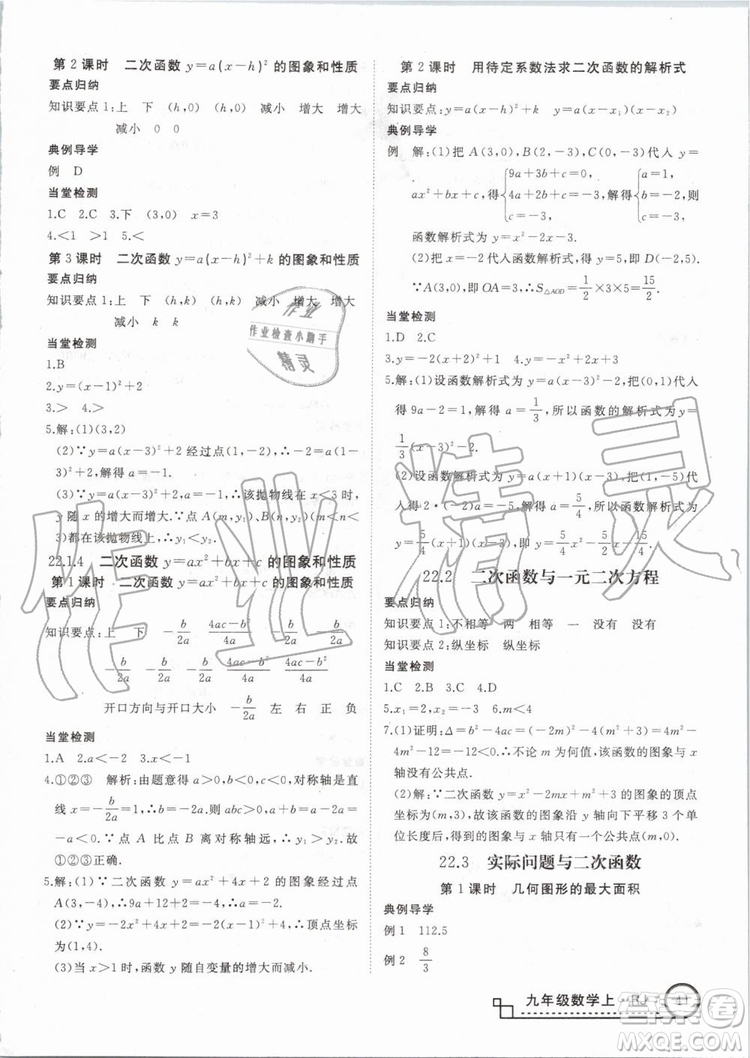 第2课时　二次函数 y=a(x-h)² 的图象和性质
要点归纳
知识要点1:上　下　(h,0)　(h,0)　减小　增大　增大
减小　0　0
典例导学
例　D
当堂检测
1.C　2.C　3.下　(3,0)　x=3
4.<1　>1　5.<
第3课时　二次函数 y=a(x-h)²+k 的图象和性质
要点归纳
知识要点1:上　下　(h,k)　(h,k)　减小　增大　增大
减小　k　k
当堂检测
1.B
2.y=(x-1)²+2
3.>　4.>
5.解:(1)(3,2)
(2)∵y=a(x-3)²+2 经过点(1,-2),∴-2=a(1-
3)²+2,解得 a=-1.
(3)∵y=-(x-3)²+2,∴该抛物线在对称轴左侧
y 随 x 的增大而增大.∵点 A(m,y₁),B(n,y₂)(m<n<
3)都在该抛物线上,∴y₁<y₂.
22.1.4　二次函数 y=ax²+bx+c 的图象和性质
第1课时　二次函数 y=ax²+bx+c 的图象和性质
要点归纳
知识要点:上　下　-b/2a　(4ac-b²)/4a　-b/2a　-b/2a
-b/2a　-b/2a　(4ac-b²)/4a　(4ac-b²)/4a
开口方向与开口大小　-b/2a　左　右　正　负
当堂检测
1.A　2.a<-2　3.x<-1
4.①②③　解析:由题意可得 a>0,b<0,c<0,对称轴是直
线 x=-b/2a=1,∴b=-2a,2a+b=0.∵a-b+c=
0,∴c=-3a.∵点 A 比点 B 与对称轴远,∴y₁>y₂,∴
①②③正确.
5.解:(1)∵二次函数 y=ax²+4x+2 的图象经过点
A(3,-4),∴9a+12+2=-4,∴a=-2.
(2)∵y=-2x²+4x+2=-2(x-1)²+4,∴顶点坐标
为(1,4).
(3)当 x>1 时,函数 y 随自变量的增大而减小.
第2课时　用待定系数法求二次函数的解析式
要点归纳
知识要点:y=a(x-h)²+k　y=a(x-x₁)(x-x₂)
典例导学
例　解:(1)把 A(3,0),B(2,-3),C(0,-3)代入 y=
ax²+bx+c,得{9a+3b+c=0,4a+2b+c=-3,c=-3,解得{a=1,b=-2,c=-3,∴
函数解析式为 y=x²-2x-3.
(2)把 x=-2 代入函数解析式得 y=5,即 D(-2,5).
∵A(3,0),即 OA=3,∴S△AOD=1/2×3×5=15/2.
当堂检测
1.D　2.C
3.y=-2(x+1)²+3　4.y=-x²+2x+3
5.解:(1)设函数解析式为 y=a(x-3)²-2,把(0,1)代
入得 9a-2=1,解得 a=1/3,所以函数的解析式为 y=
1/3(x-3)²-2.
(2)设函数的解析式为 y=a(x+1)(x-3),把(1,-5)
代入得 a×2×(-2)=-5,解得 a=5/4,即解析式为 y=
5/4(x+1)(x-3),即 y=5/4x²-5/2x-15/4.
22.2　二次函数与一元二次方程
要点归纳
知识要点1:不相等　两　相等　一　没有　没有
知识要点2:纵坐标　纵坐标
当堂检测
1.C　2.B　3.C　4.D
5.x₁=1,x₂=-3　6.m<4
7.(1)证明:Δ=b²-4ac=(-2m)²-4(m²+3)=
4m²-4m²-12=-12<0,∴不论 m 为何值,该函数的图象与 x
轴没有公共点.
(2)解:∵二次函数 y=x²-2mx+m²+3 的图象的顶点
坐标为(m,3),故该函数的图象沿 y 轴向下平移3个单
位长度后,得到的函数的图象与 x 轴只有一个公共点(m,0).
22.3　实际问题与二次函数
第1课时　几何图形的最大面积
典例导学
例1　112.5
例2　8/3
九年级数学上·RJ·　41
作业
作业检查小助手
精灵
作业精灵
答案圈
MXQE.COM